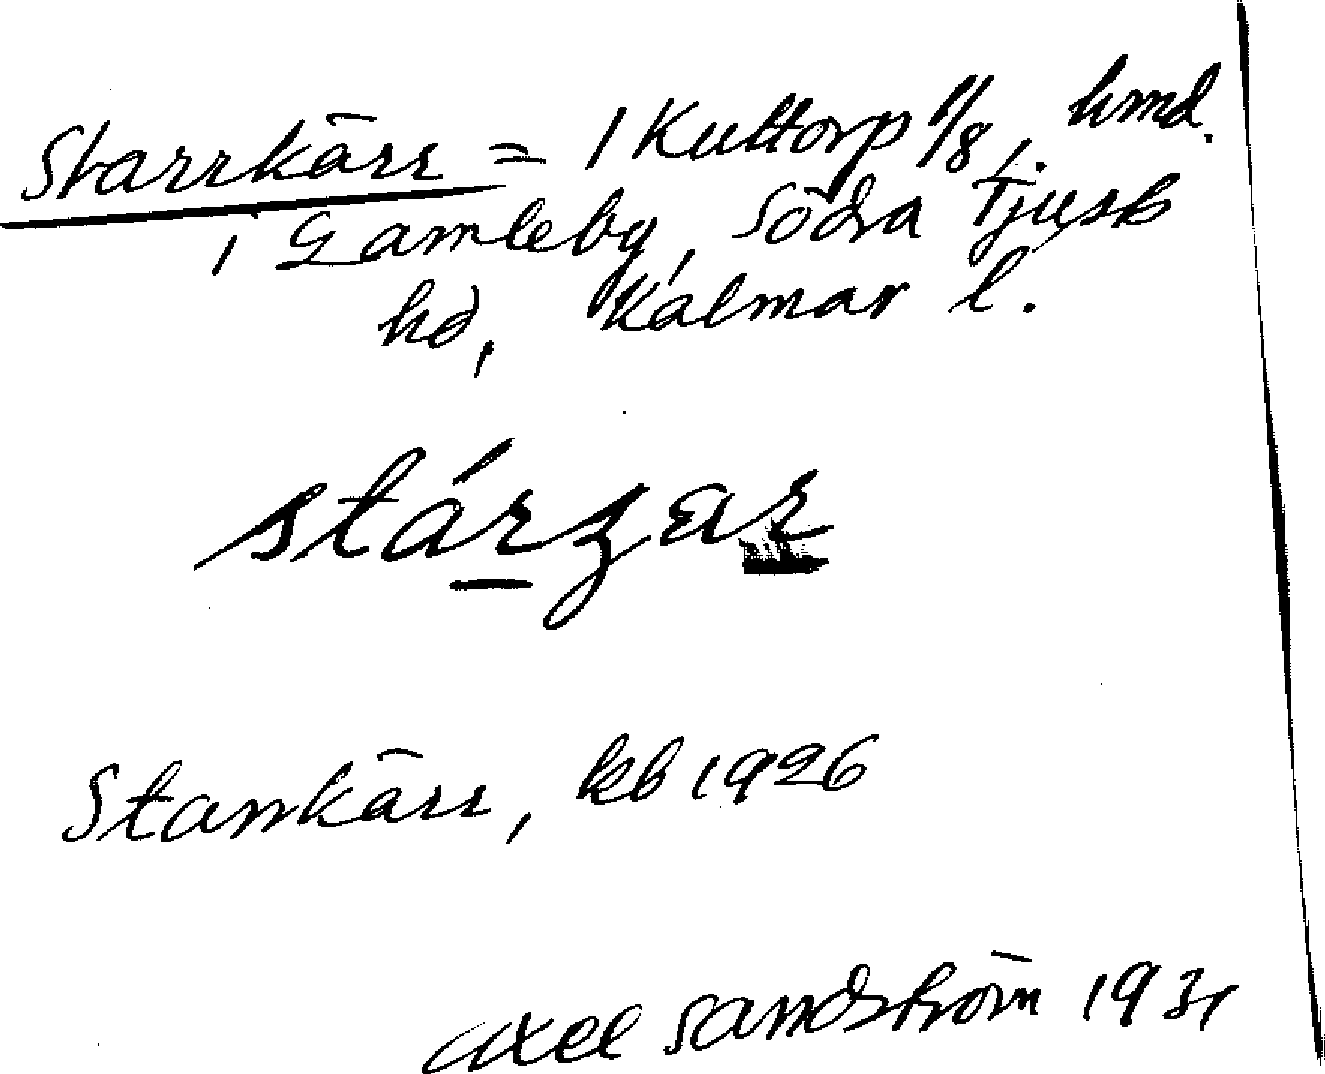 Starrkärr = 1 Kuttorp 1/8, hmd.
i Gamleby, Södra Tjust
hd, Kalmar l.
stárzar
Stankärr, kb 1926
Axel Sandström 1931